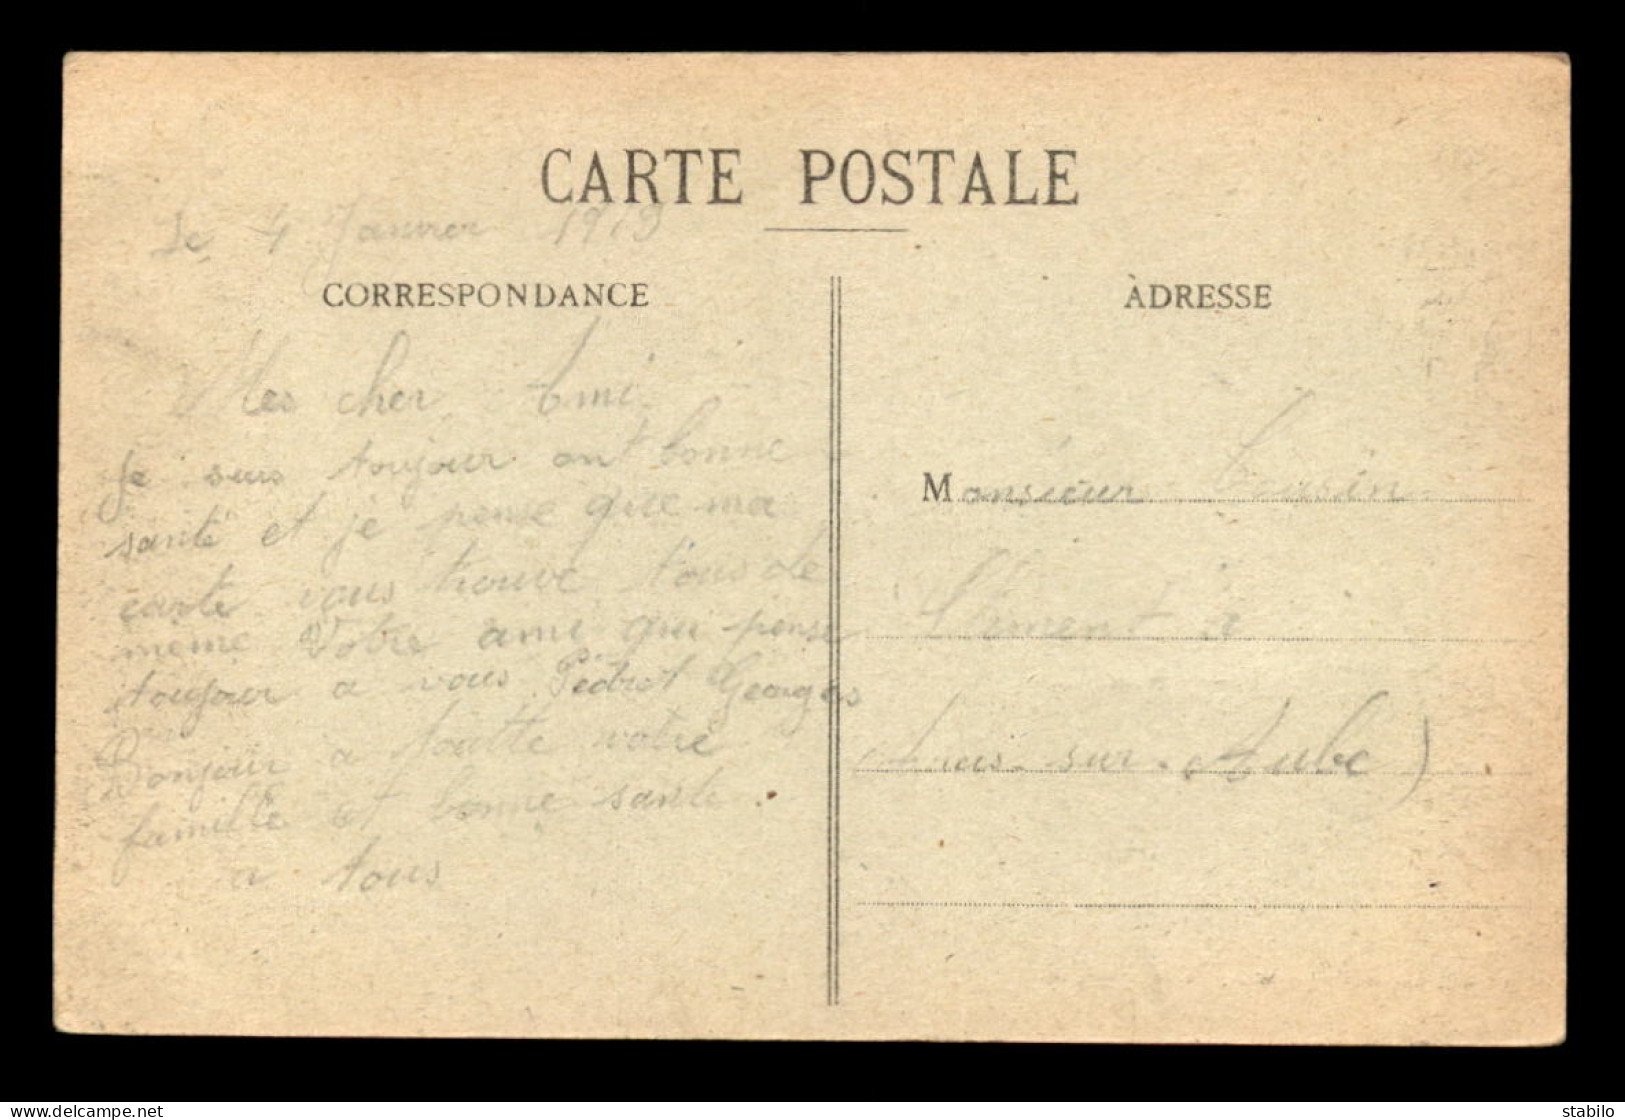 CARTE POSTALE
Le 4 Janvier 1919
CORRESPONDANCE
Mes cher Ami
Je suis toujour ont bonne
santé et je pense que ma
carte vous trouve tous de
meme Votre ami qui pense
toujour a vous Pedrot Georges
Bonjour a toutte votre
famille et bonne sante
a tous
ADRESSE
Monsieur Cousin
Clément à
sur Aube)
stabilo